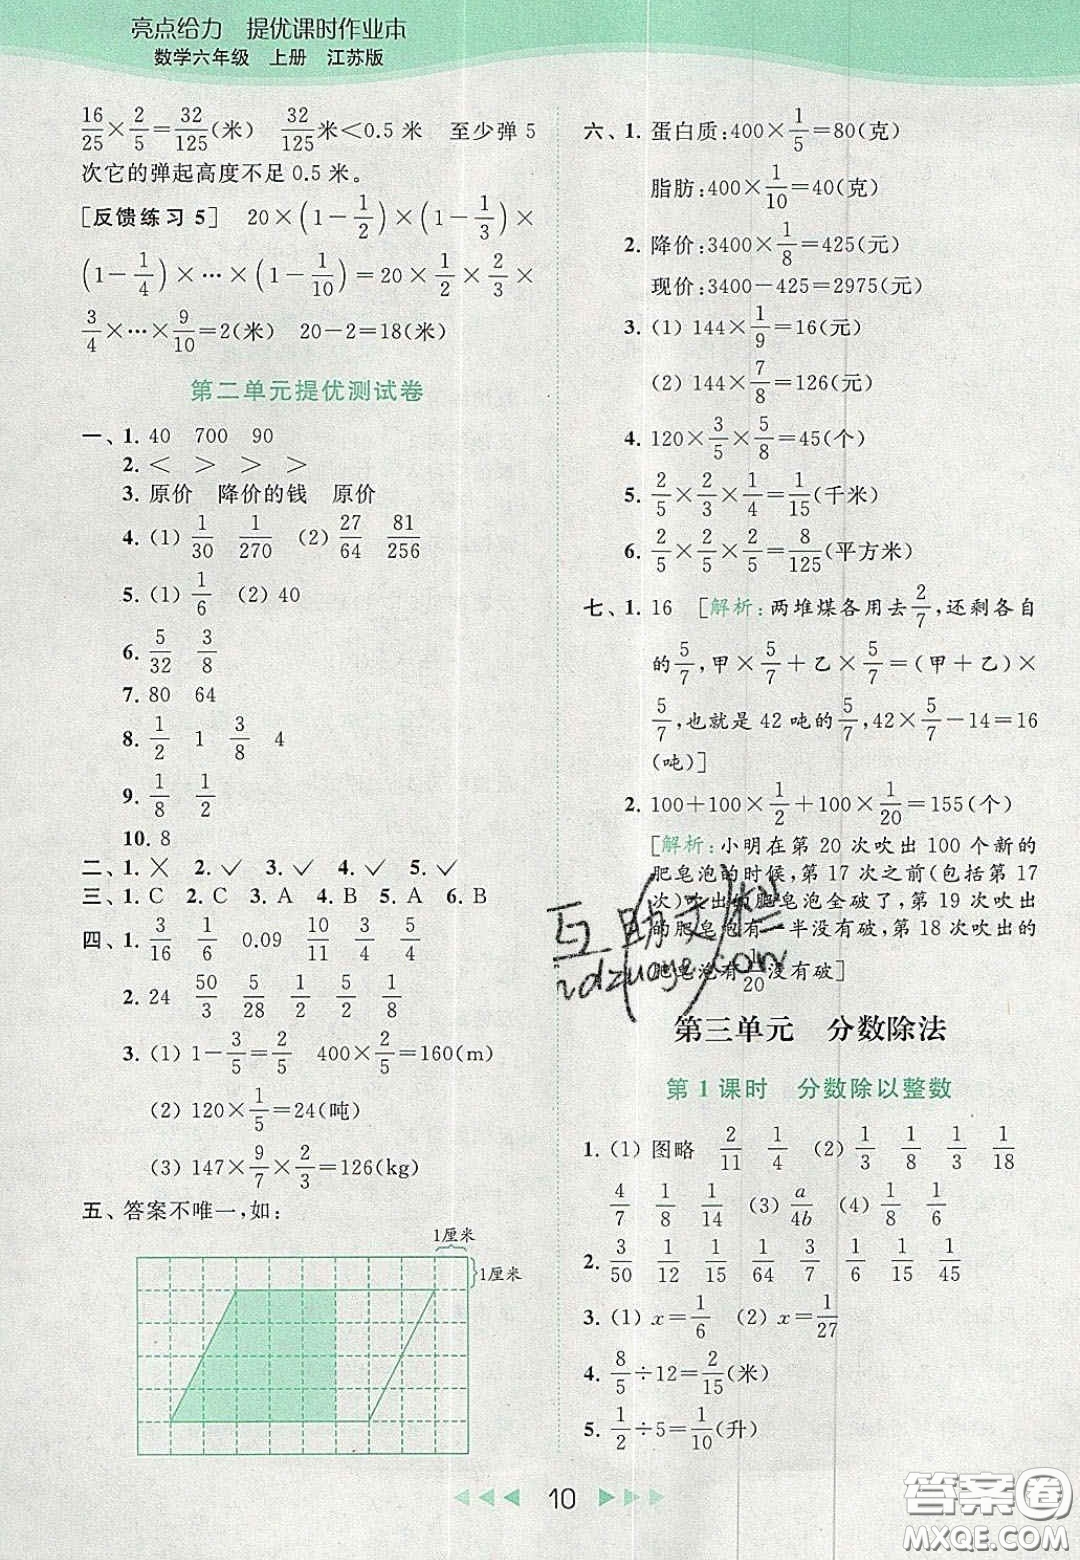 亮点给力 提优课时作业本
数学六年级 上册 江苏版
16/25×2/5=32/125(米) 32/125米<0.5米 至少弹5
次它的弹起高度不足0.5米。
[反馈练习5] 20×(1-1/2)×(1-1/3)×
(1-1/4)×…×(1-1/10)=20×1/2×2/3×
3/4×…×9/10=2(米) 20-2=18(米)
第二单元提优测试卷
一、1. 40 700 90
2. < > > >
3. 原价 降价的钱 原价
4. (1) 1/30 1/270 (2) 27/64 81/256
5. (1) 1/6 (2) 40
6. 5/32 3/8
7. 80 64
8. 1/2 1 3/8 4
9. 1/8 1/2
10. 8
二、1. × 2. ✓ 3. ✓ 4. ✓ 5. ✓
三、1. C 2. C 3. A 4. B 5. A 6. B
四、1. 3/16 1/6 0.09 10/11 3/4 5/4
2. 24 50/3 5/28 1/2 5/6 1/8
3. (1) 1-3/5=2/5 400×2/5=160(m)
(2) 120×1/5=24(吨)
(3) 147×9/7×2/3=126(kg)
五、答案不唯一,如:
1厘米
1厘米
六、1. 蛋白质:400×1/5=80(克)
脂肪:400×1/10=40(克)
2. 降价:3400×1/8=425(元)
现价:3400-425=2975(元)
3. (1) 144×1/9=16(元)
(2) 144×7/8=126(元)
4. 120×3/5×5/8=45(个)
5. 2/5×2/3×1/4=1/15(千米)
6. 2/5×2/5×2/5=8/125(平方米)
七、1. 16 [解析:两堆煤各用去2/7,还剩各自
的5/7,甲×5/7+乙×5/7=(甲+乙)×
5/7,也就是42吨的5/7,42×5/7-14=16
(吨)]
2. 100+100×1/2+100×1/20=155(个)
[解析:小明在第20次吹出100个新的
肥皂泡的时候,第17次之前(包括第17
次)吹出的肥皂泡全破了,第19次吹出
的肥皂泡有一半没有破,第18次吹出的
肥皂泡有1/20没有破]
互助文档
hdzuoye.com
第三单元 分数除法
第1课时 分数除以整数
1. (1) 图略 2/11 1/4 (2) 1/3 1/8 1/3 1/18
4/7 1/8 1/14 (3) a/4b (4) 1/8 1/6
2. 3/50 1/12 2/15 1/64 3/7 1/6 1/15 1/45
3. (1) x=1/6 (2) x=1/27
4. 8/5÷12=2/15(米)
5. 1/2÷5=1/10(升)
10
答案圈
MXQE.COM